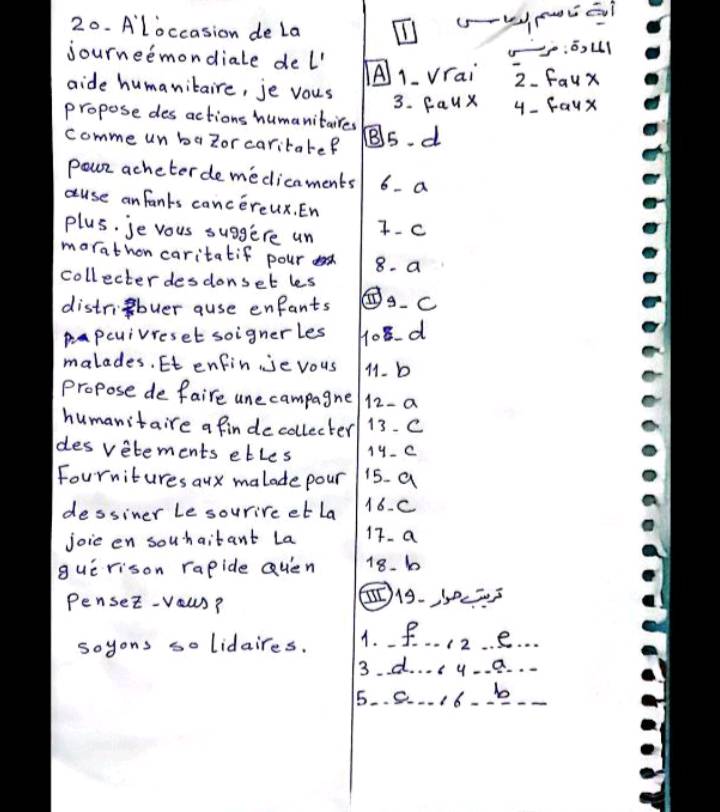 20- A'L'occasion de La
journeémondiale de L'
aide humanitaire, je vous
propose des actions humanitaires
Comme un bazor caritatef
pour acheter de médicaments
ause anfants cancéreux.En
plus. je vous suggére un
marathon caritatif pour
collecter des dons et les
distribuer ause enfants
pauvres et soigner Les
malades. Et enfin je vous
Propose de faire une campagne
humanitaire afin de collecter
des vêtements et Les
Fournitures aux malade pour
dessiner Le sourire et La
joie en souhaitant La
guérison rapide Qu'en
Pensez-vous?
soyons solidaires.
آية قاسم
I
المادة: فرنسي
A 1- Vrai 2- Faux
3- Faux 4- Faux
B 5- d
6- a
7- c
8- a
II 9- C
10- d
11- b
12- a
13- C
14- C
15- a
16- C
17- a
18- b
III 19- ترتيب حوار
1. - f ... , 2 .. e ...
3 .. d ... , 4 .. a ...
5 .. c ... , 6 .. b ...